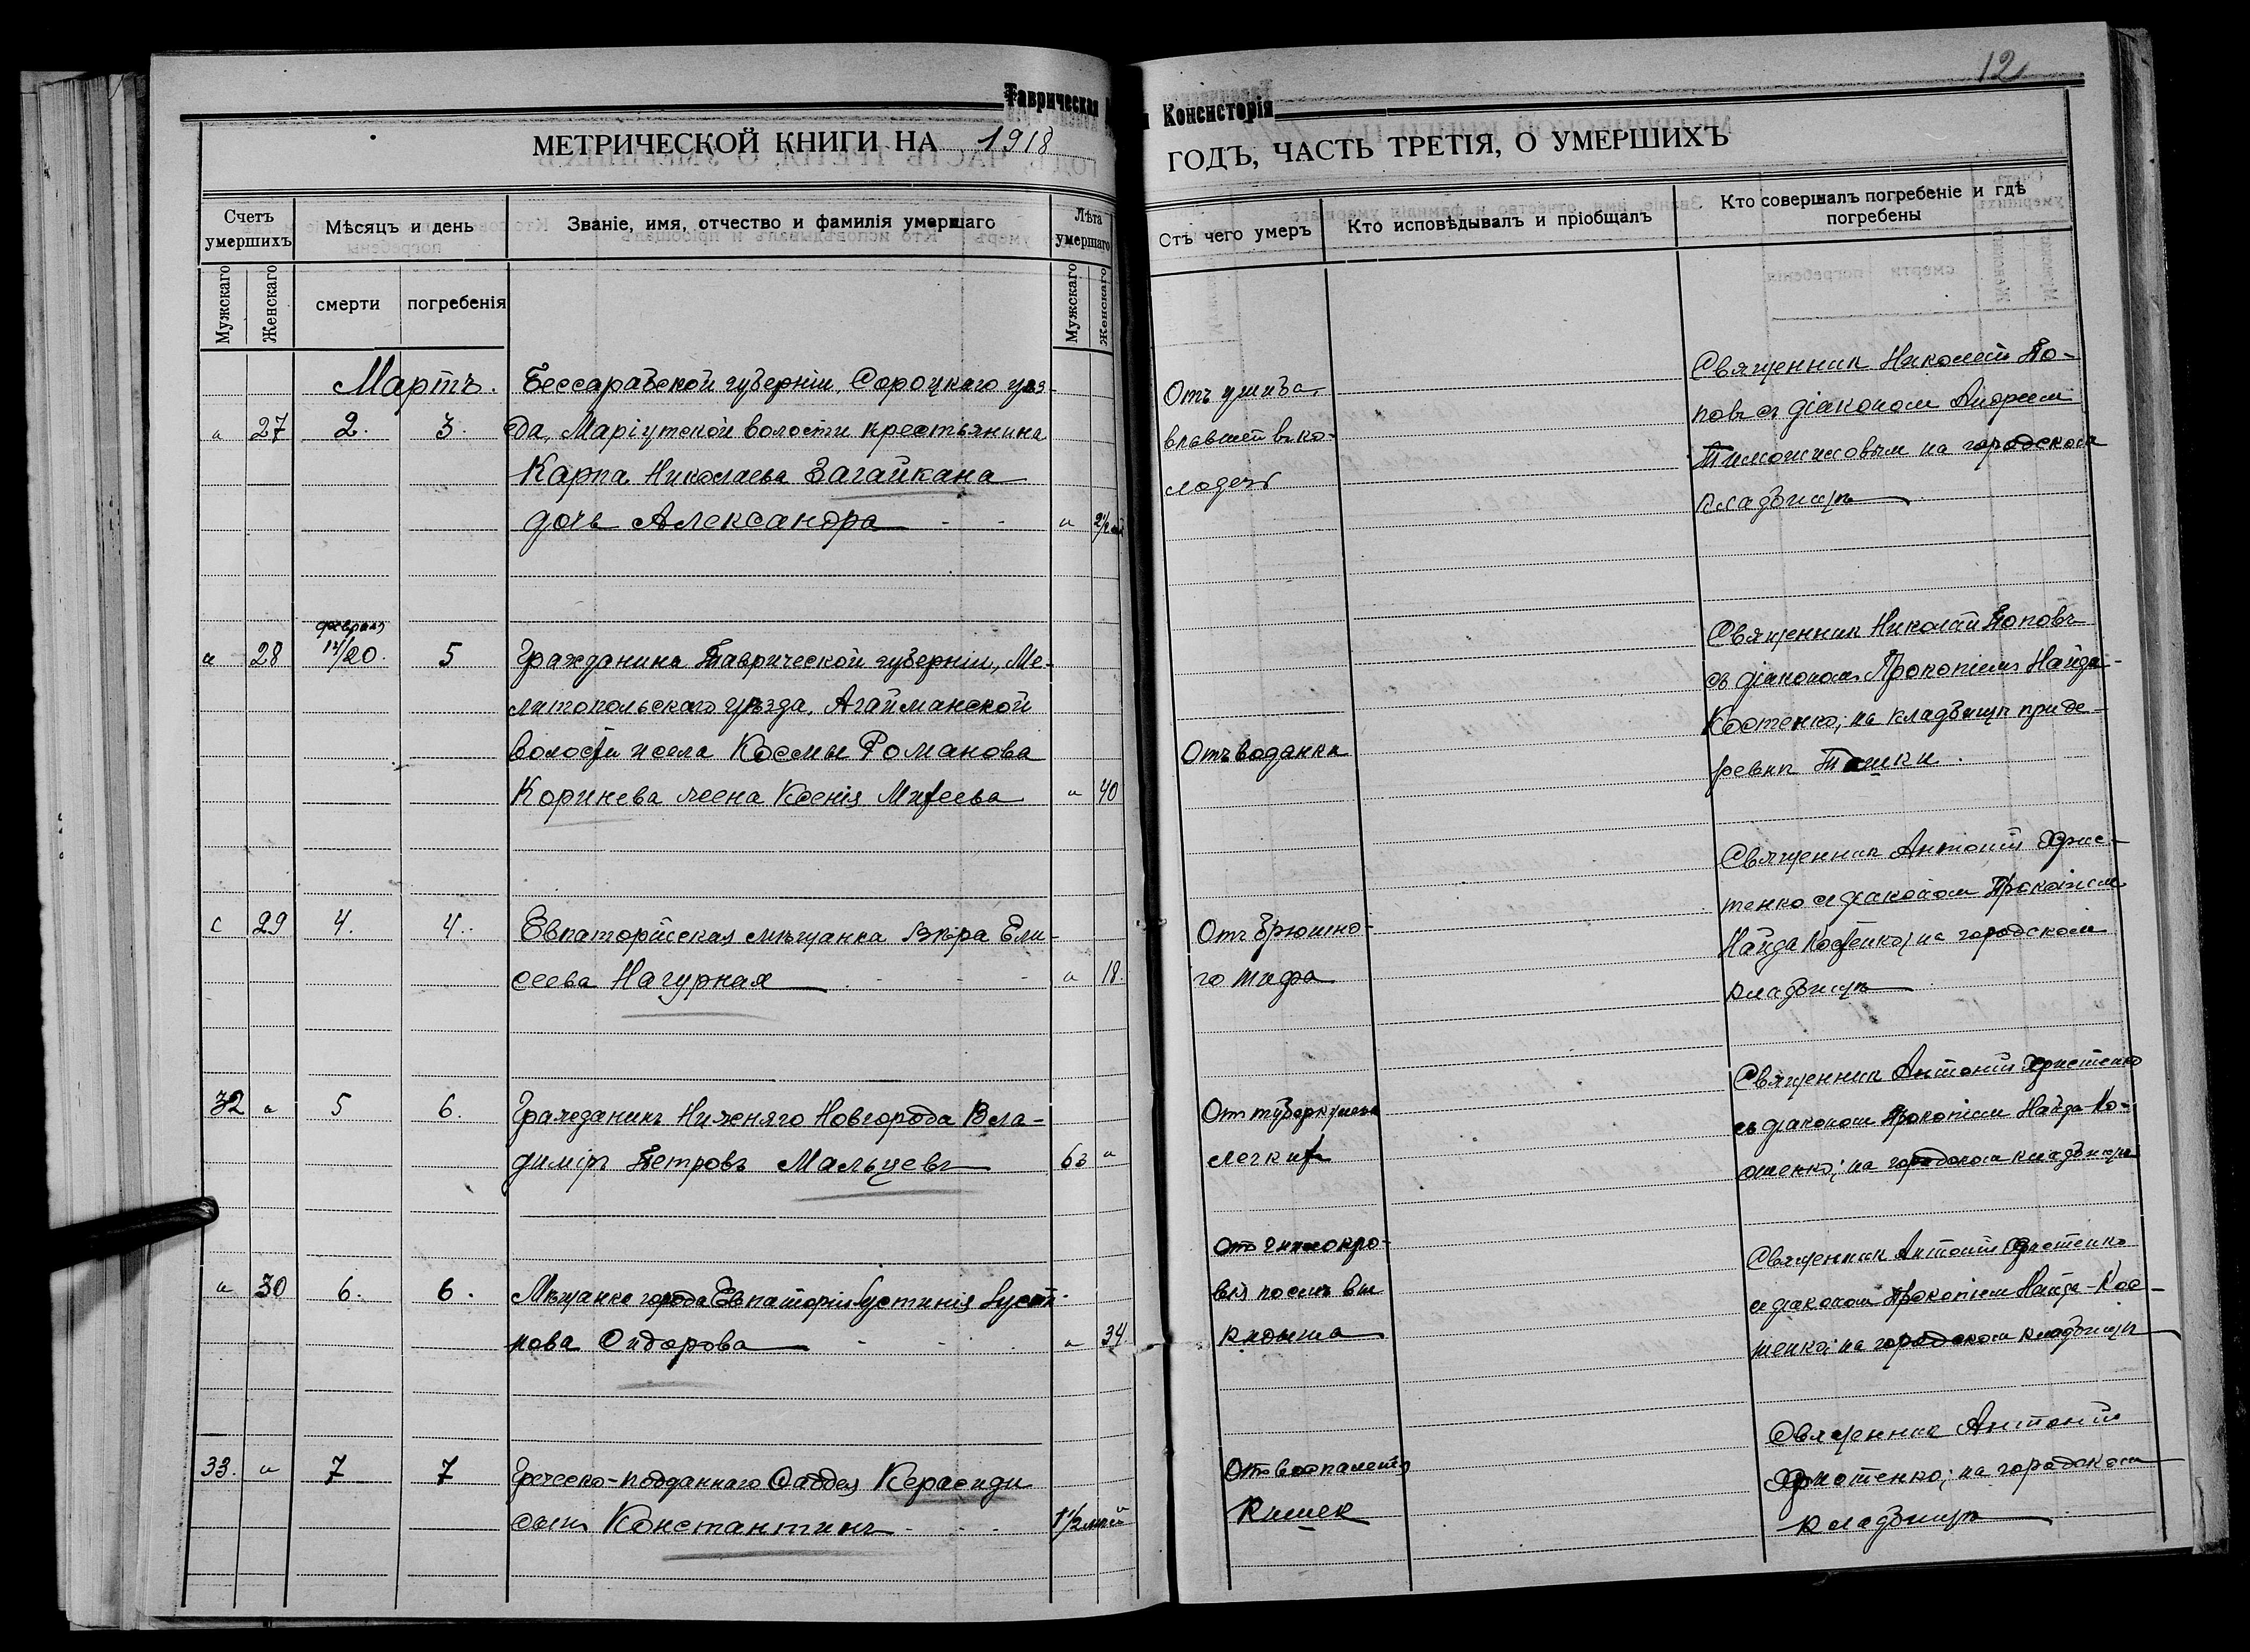 12
Таврическая
Консисторія
МЕТРИЧЕСКОЙ КНИГИ НА 1918
ГОДЪ, ЧАСТЬ ТРЕТІЯ, О УМЕРШИХЪ
Счетъ умершихъ
Мѣсяцъ и день
Званіе, имя, отчество и фамилія умершаго
Лѣта умершаго
Мужскаго
Женскаго
смерти
погребенія
Мужскаго
Женскаго
Отъ чего умеръ
Кто исповѣдывалъ и пріобщалъ
Кто совершалъ погребеніе и гдѣ
погребены
Мартъ.
27 2. 3.
Бессарабской губерніи, Сороцкаго уѣз-
да, волости крестьянина
Карпа Николаева Загайкана
дочь Александра
Отъ ушиба,
колодезь
Священник Николай По-
повъ съ діаконом Андреем
на городском
кладбищѣ
28 февраля 17/20. 5
Гражданина Таврической губерніи, Ме-
литопольскаго уѣзда, Агайманской
волости и села Космы Романова
Коринева жена Ксенія 40
Отъ водянки
Священник Николай Поповъ
съ діаконом Прокопіем Найда-
Костенко; на кладбищѣ при де-
ревнѣ
29 4. 4.
Евпаторійская мѣщанка Вѣра Ели-
сеева Нагурная 18.
Отъ брюшно-
го тифа
Священник Антоній Хрис-
тенко съ діаконом Прокопіем
Найда Костенко; на городском
кладбищѣ
32 5 6.
Гражданинъ Нижняго Новгорода Вла-
диміръ Петровъ Мальцевъ 63
От туберкулеза
легких
Священник Антоній Христенко
съ діаконом Прокопіем Найда-Ко-
стенко; на городском кладбищѣ
30 6. 6.
Мѣщанка города Евпаторіи Іустинія Іусти-
нова Сидорова 34.
Отъ
вія послѣ вы-
кидыша
Священник Антоній Христенко
съ діаконом Прокопіем Найда-Кос-
тенко; на городском кладбищѣ
33. 7 7
Греческо-подданнаго Саввы Керасиди
сынъ Константинъ 1 1/2
Отъ воспаленія
кишек
Священник Антоній
Христенко; на городском
кладбищѣ